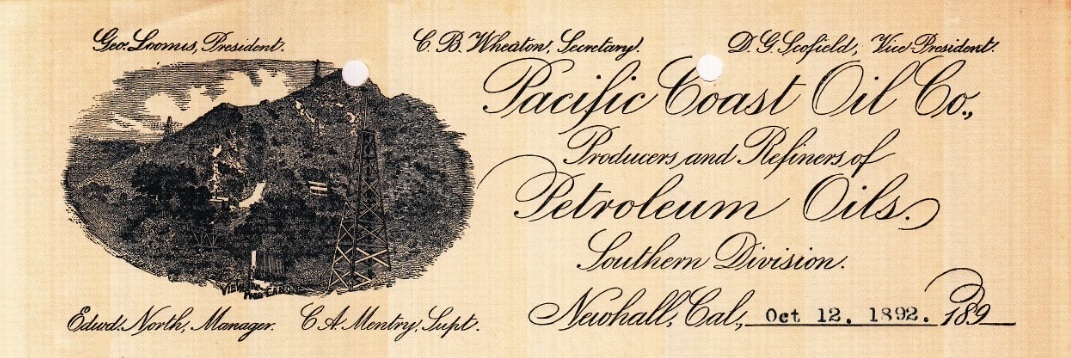 Geo. Loomis, President. C. B. Wheaton, Secretary. D. G. Scofield, Vice President.
Pacific Coast Oil Co.,
Producers and Refiners of
Petroleum Oils.
Southern Division.
Edwd. North, Manager. C. A. Mentry, Supt.
Newhall, Cal., Oct 12. 1892. 189